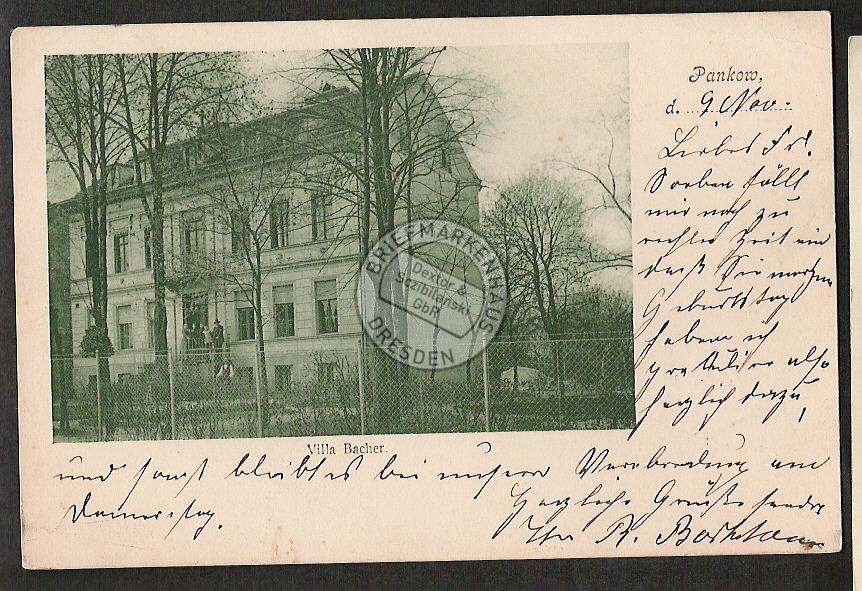 Pankow,
d. 9 Nov.
Liebes Frl.
Soeben fällt
mir noch zu
rechter Zeit ein
daß Sie morgen
Geburtstag
haben ich
gratuliere also
herzlich dazu,
Villa Bacher.
und sonst bleibt es bei unsrer Verabredung am
Donnerstag.
Herzliche Grüße sendet
Ihr R.
BRIEFMARKENHAUS
Dextor &
Sczibilanski
GbR
DRESDEN